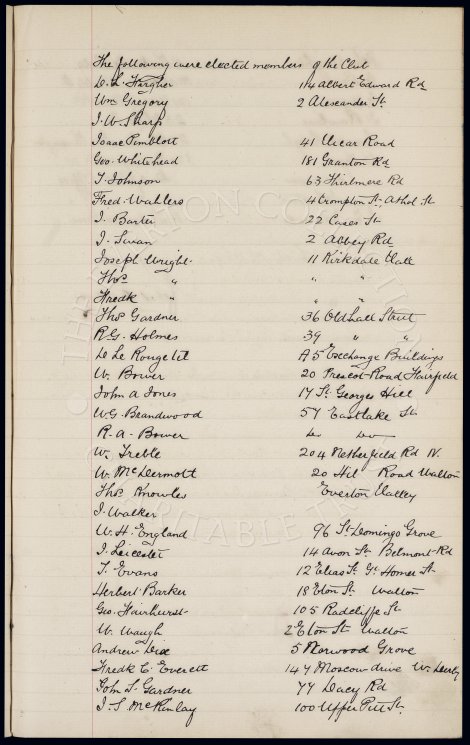 The following were elected members of the Club
D. L. Hargher 14 Albert Edward Rd
Wm Gregory 2 Alexander St
J. W. Sharp
Isaac Pimblott 41 Vicar Road
Geo. Whitehead 181 Granton Rd
T. Johnson 63 Thirlmere Rd
Fred. Wahlers 4 Crompton St Athol St
J. Barter 22 Cases St
J. Swan 2 Abbey Rd
Joseph Wright 11 Kirkdale Vale
Thos " " "
Fredk " " "
Thos Gardner 36 Oldhall Street
R. G. Holmes 39 " "
A5 Exchange Buildings
W. Bower 20 Prescot Road Fairfield
John A Jones 17 St. Georges Hill
W. G. Brandwood 57 Eastlake St.
R. A. Bower do do
W. Treble 204 Netherfield Rd N.
W. McDermott 20 Road Walton
Thos Knowles Everton Valley
J. Walker
W. H. England 96 St Domingo Grove
J. Leicester 14 Avon St Belmont Rd
T. Evans 12 Elias St Gt Homer St
Herbert Barker 18 Eton St Walton
Geo. Fairhurst 105 Radcliffe St
W. Waugh 2 Eton St Walton
Andrew Dix 5 Norwood Grove
Fredk C. Everett 147 Moscow drive W. Derby
John S. Gardner 77 Dacy Rd
J. S. McKinlay 100 Upper Pitt St.
THE EVERTON COLLECTION
CHARITABLE TRUST